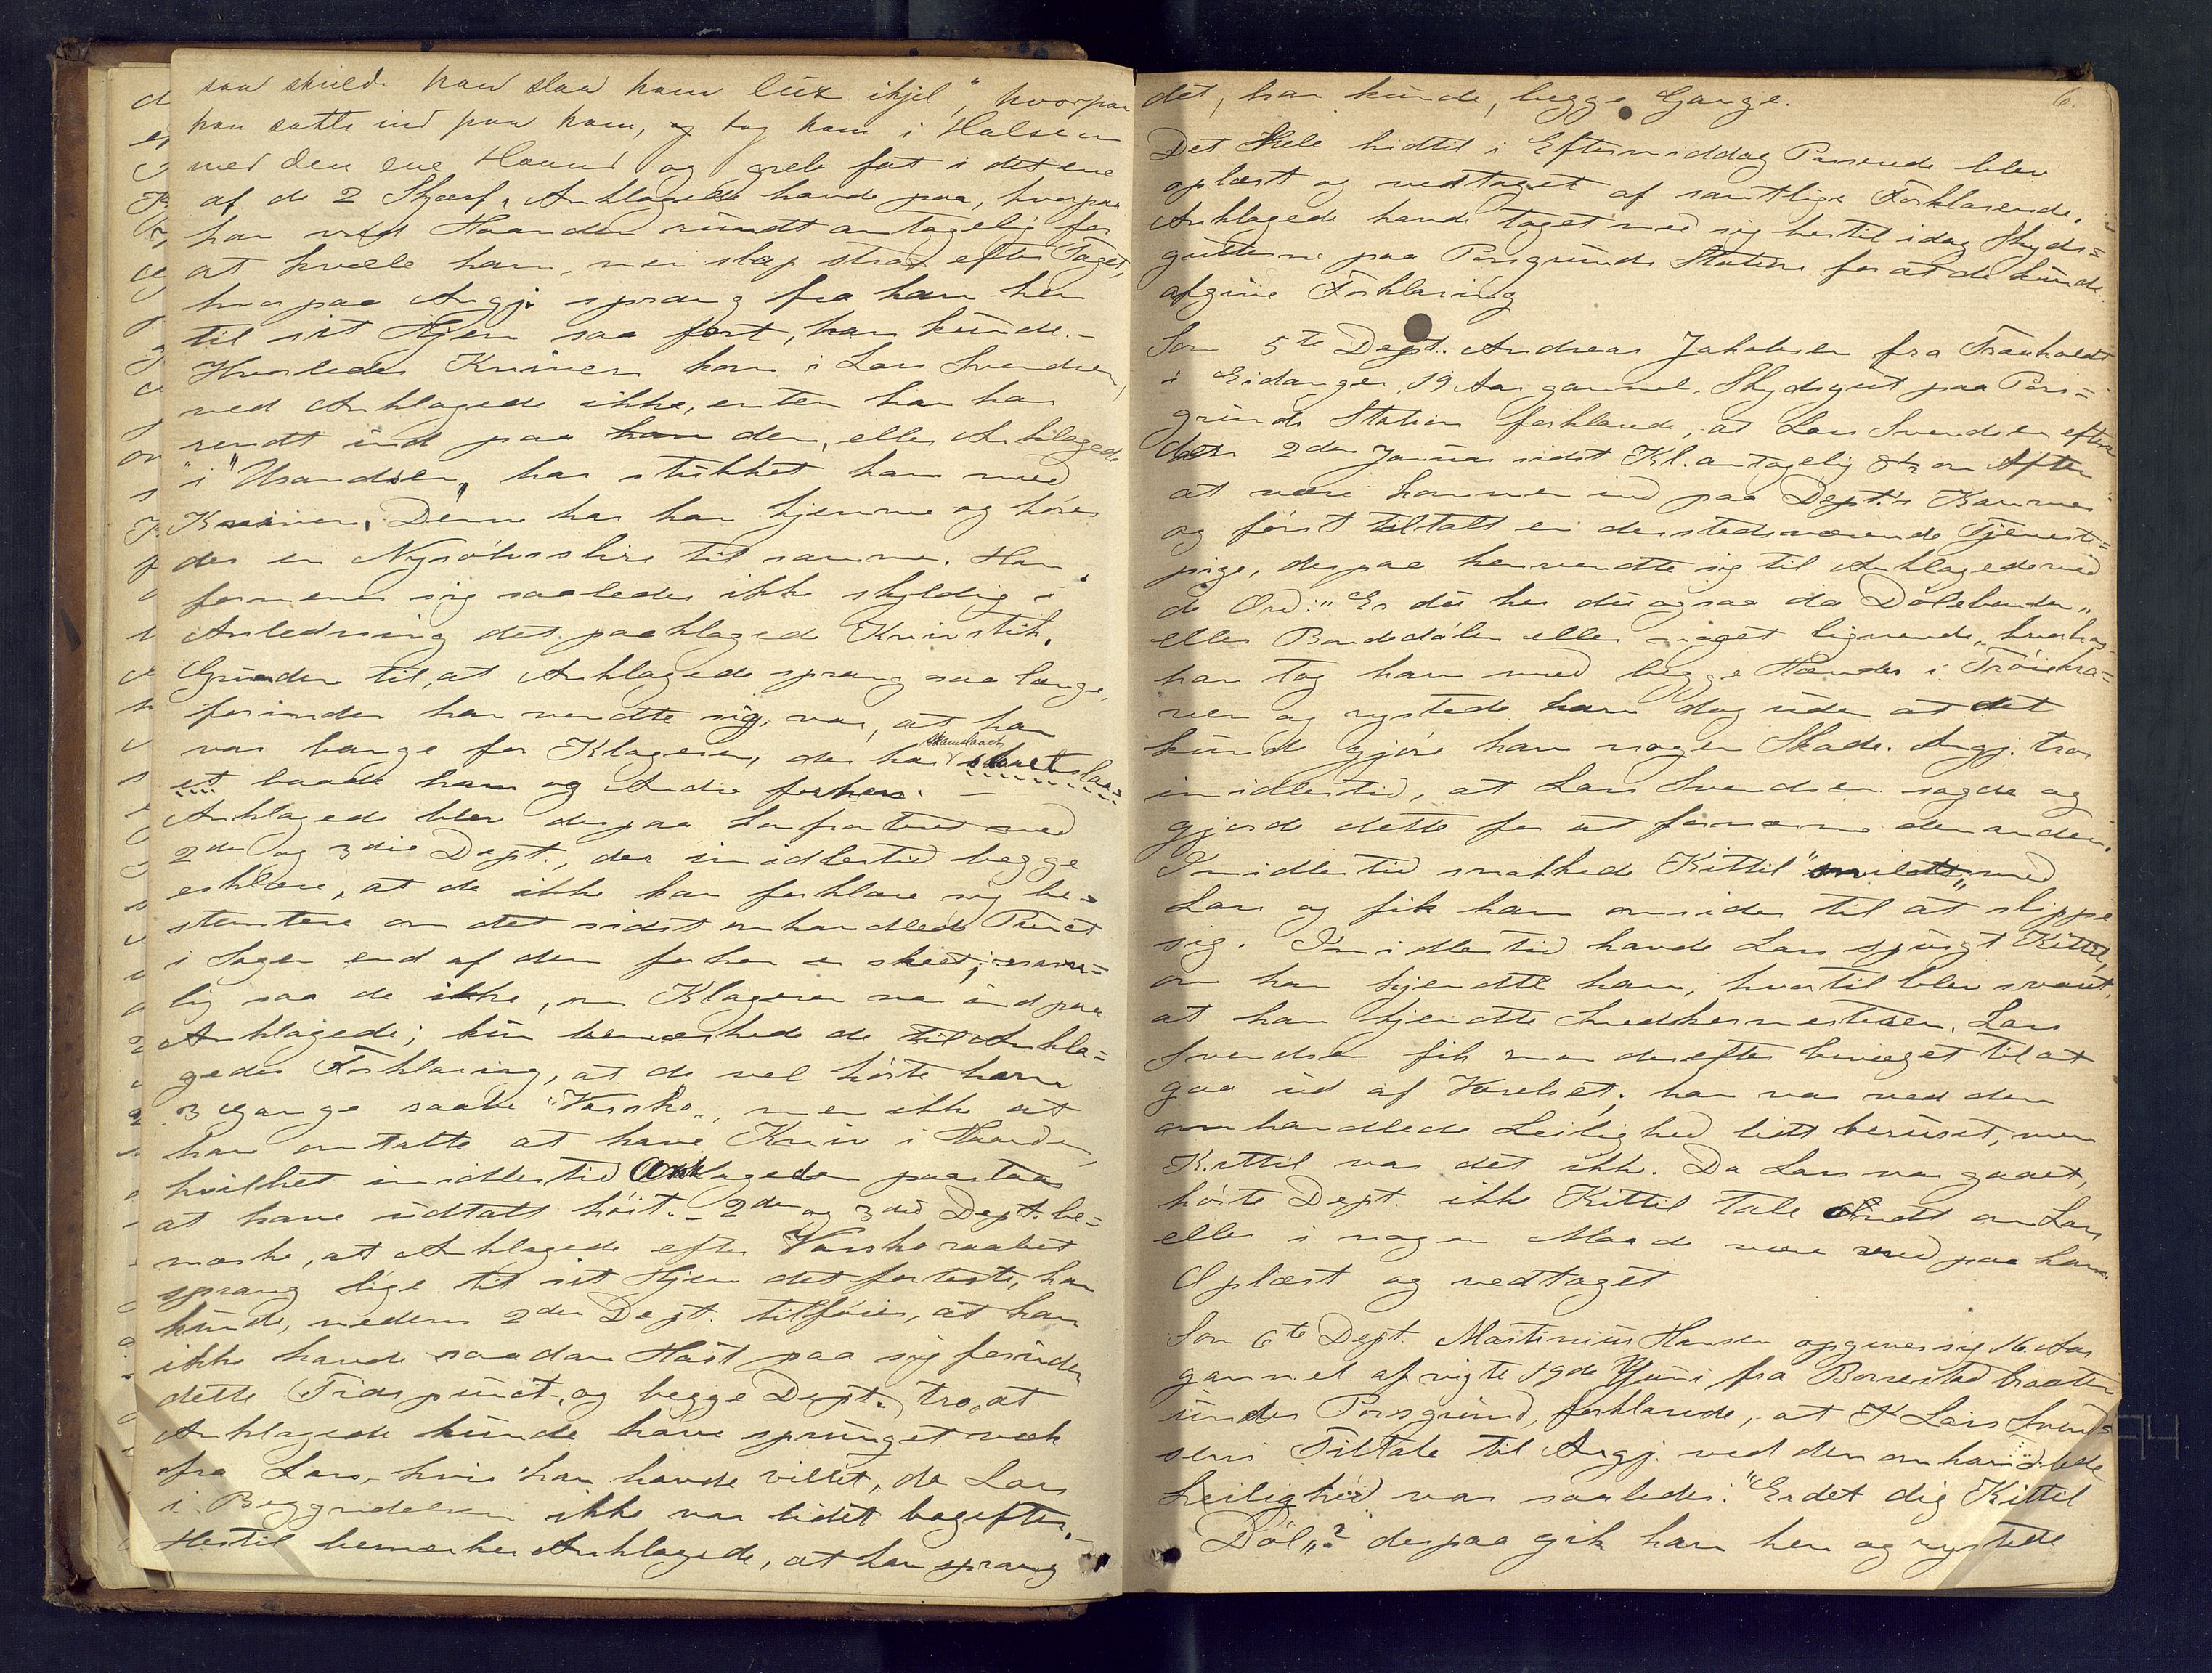 saa skulde han slaa ham lux ihjel", hvorpaa
han satte ind paa ham, og tog ham i Halsen
med den ene Haand og greb fat i det ene
af de 2 Skjærf, Anklagede havde paa, hvorpaa
han vred Haanden rundt antagelig for
at kvæle ham, men slap strax efter Taget,
hvorpaa Angj. sprang fra ham hen
til sit Hjem saa fort, han kunde.-
Hvorledes Kniven kom i Lars Svendsen,
ved Anklagede ikke, enten han har
rendt ind paa den, eller Anklagede
i "Usandsen" har stukket ham med
Kniven. Denne har han hjemme og hører
der en Nysølvsslire til samme. Han
formener sig saaledes ikke skyldig i
Anledning det paaklagede Knivstik.
Grunden til, at Anklagede sprang saa længe,
forinden han vendte sig, var, at han
var bange for Klageren, der har skamslaa-
et baade ham og Andre forhen. -
Anklagede blev derpaa konfronteret med
2den og 3die Dept., der imidlertid begge
erklære, at de ikke kan forklare sig be-
stemtere om det sidst omhandlede Punct
i Sagen end af dem forhen er skeet; navn-
lig saa de ikke, om Klageren var ind paa
Anklagede; kun bemærkede de til Ankla-
gedes Forklaring, at de vel hørte ham
3 Gange raabe "Varsko", men ikke at
han omtalte at have Kniv i Haanden,
hvilket imidlertid Anklagede paastaar
at have udtalt høit. - 2den og 3die Dept. be-
mærke, at Anklagede efter Varskoraabet
sprang lige til sit Hjem det forteste, han
kunde, medens 2den Dept. tilføier, at han
ikke havde saadan Hast paa sig forinden
dette Tidspunct, og begge Dept. tro, at
Anklagede kunde have sprunget væk
fra Lars, hvis han havde villet, da Lars
i Begyndelsen ikke var lidet bagefter. -
Hertil bemærker Anklagede, at han sprang
6.
det, han kunde, begge Gange.
Det Hele hidtil i Eftermiddag Passerede blev
oplæst og vedtaget af samtlige Forklarende.
Anklagede havde taget med sig hertil idag Skyds-
gutterne paa Porsgrunds Station for at de kunde
afgive Forklaring
Som 5te Dept. Andreas Jakobsen fra Traaholdt
i Eidanger, 19 Aar gammel, Skydsgut paa Pors-
grunds Station forklarede, at Lars Svendsen efter
den 2den Januar sidst Kl. antagelig 8½ om Aften
at være kommen ind paa Dept.s Kammer
og først tiltalt en derstedsværende Tjeneste-
pige, derpaa henvendte sig til Anklagede med
de Ord: "Er du her du ogsaa da Dølebonden"
eller Bondedølen eller noget lignende, hvorhos
han tog ham med begge Hænder i Trøiekra-
ven og rystede ham dog uden at det
kunde gjøre ham nogen Skade. Angj. tror
imidlertid, at Lars Svendsen sagde og
gjorde dette for at fornærme den anden.
Imidlertid snakkede Kittil "snildt" med
Lars og fik ham omsider til at slippe
sig. Imidlertid havde Lars spurgt Kittil,
om han kjendte ham, hvortil blev svaret,
at han kjendte Snedkermesteren. Lars
Svendsen fik man derefter bevæget til at
gaa ud af Værelset; han var ved den
omhandlede Leilighed lidt beruset, men
Kittil var det ikke. Da Lars var gaaet,
hørte Dept. ikke Kittil tale Ondt om Lars
eller i nogen Maade være vred paa ham.
Oplæst og vedtaget
Som 6te Dept. Martinius Hansen opgiver sig 16 Aar
gammel afvigte 19de Juni fra Borrestad braaten
under Porsgrund, forklarede, at Lars Svend-
sens Tiltale til Angj. ved den omhandlede
Leilighed var saaledes: "Er det dig Kittil
Døl"? derpaa gik han hen og rystede